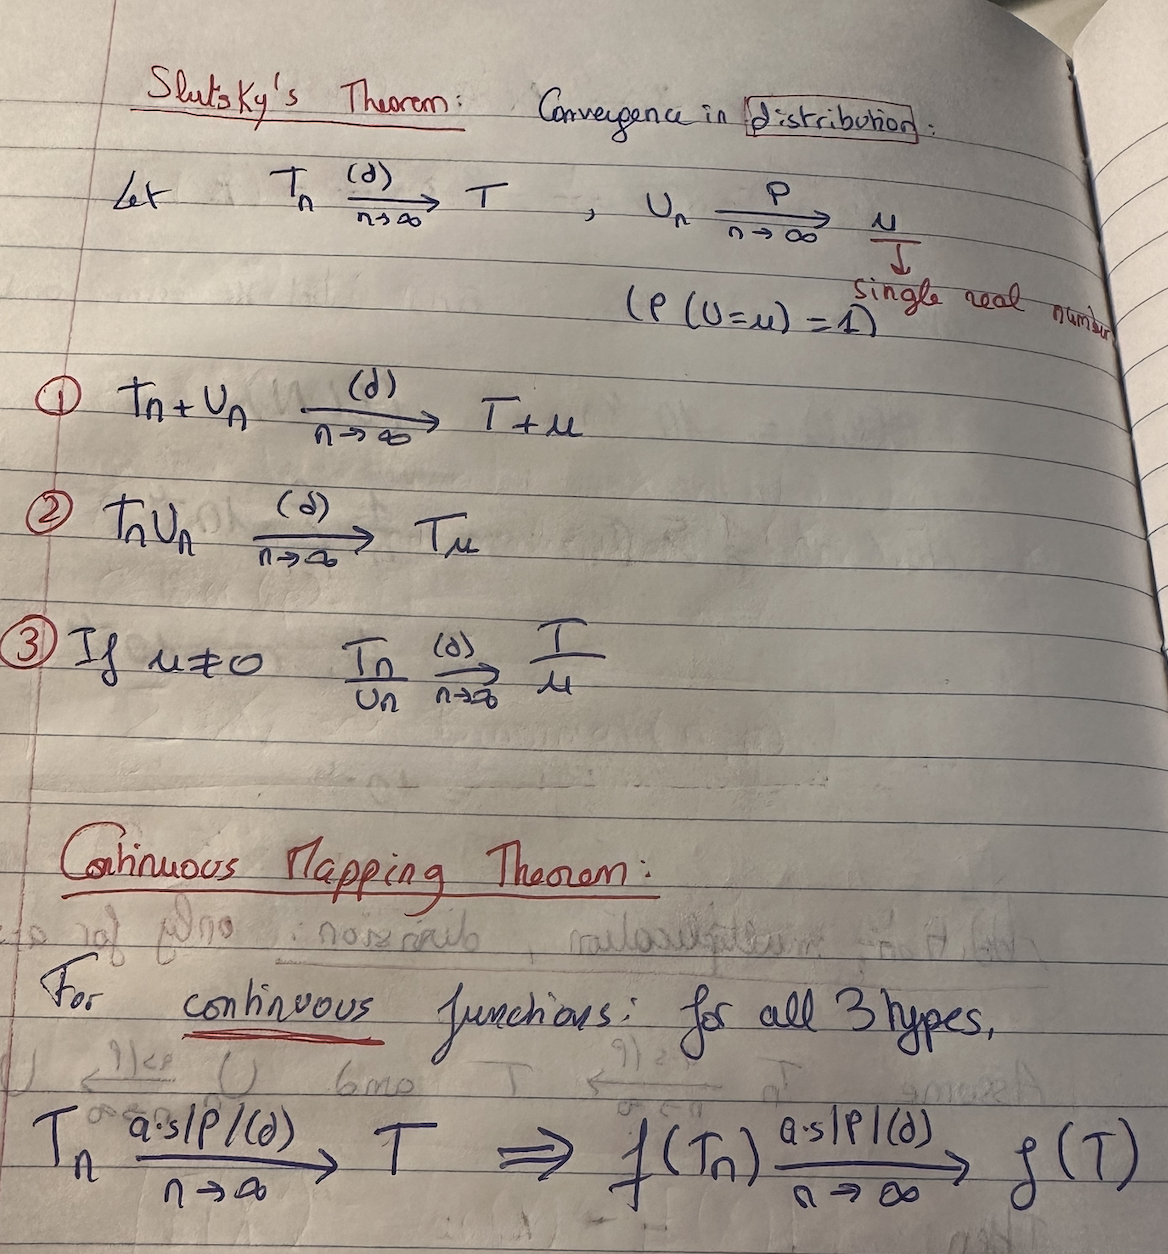 Slutsky's Theorem: Convergence in distribution:
Let Tn (d) n→∞ T , Un P n→∞ u
single real number
(P(U=u)=1)
① Tn+Un (d) n→∞ T+u
② TnUn (d) n→∞ Tu
③ If u≠0 Tn/Un (d) n→∞ T/u
Continuous Mapping Theorem:
For continuous functions: for all 3 types,
Tn a.s/P/(d) n→∞ T ⇒ f(Tn) a.s/P/(d) n→∞ f(T)